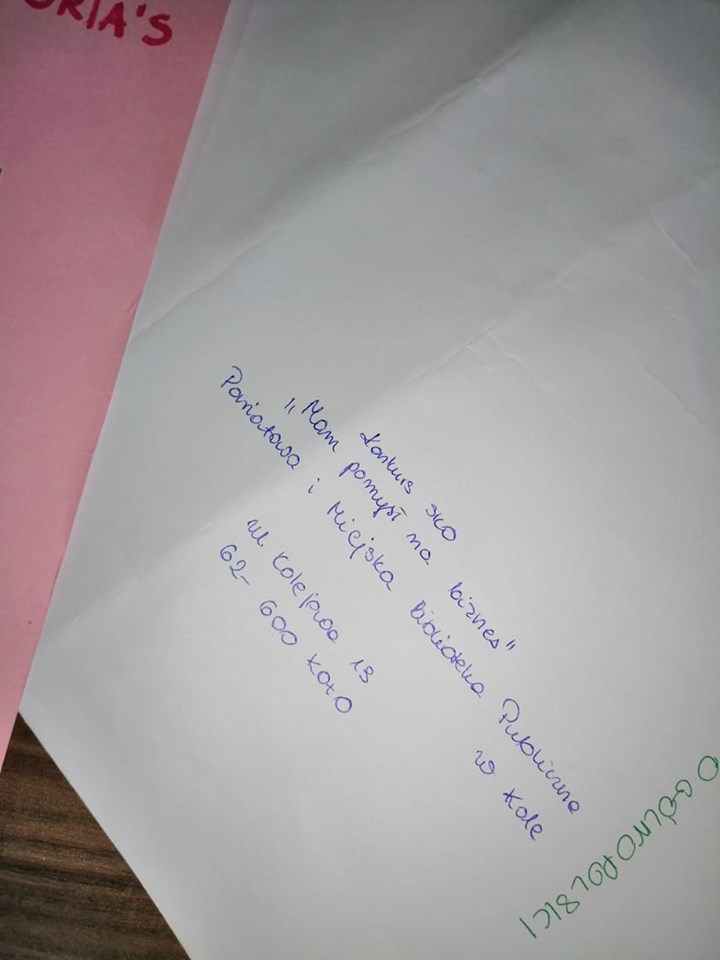 ORIA'S
Konkurs SKO
"Mam pomysł na biznes"
Powiatowa i Miejska Biblioteka Publiczna
w Kole
ul. Kolejowa 13
62-600 Koło
OGÓLNOPOLSKI